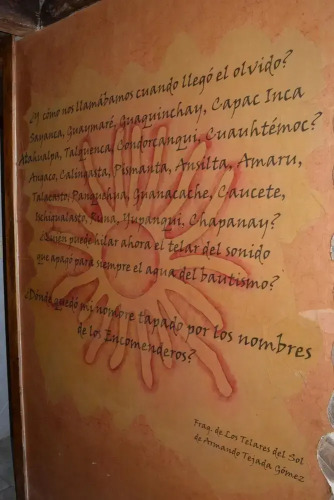 ¿Y cómo nos llamábamos cuando llegó el olvido?
Sayanca, Guaymaré, Guaquinchay, Capac Inca
Atahualpa, Talquenca, Condorcanqui, Cuauhtémoc?
Angaco, Calingasta, Pismanta, Ansilta, Amaru,
Talacasto, Panquehua, Guanacache, Caucete,
Ischigualasto, Runa, Yupanqui, Chapanay?
¿Quien puede hilar ahora el telar del sonido
que apagó para siempre el agua del bautismo?
¿Dónde quedó mi nombre tapado por los nombres
de los Encomenderos?
Frag. de Los Telares del Sol
de Armando Tejada Gómez